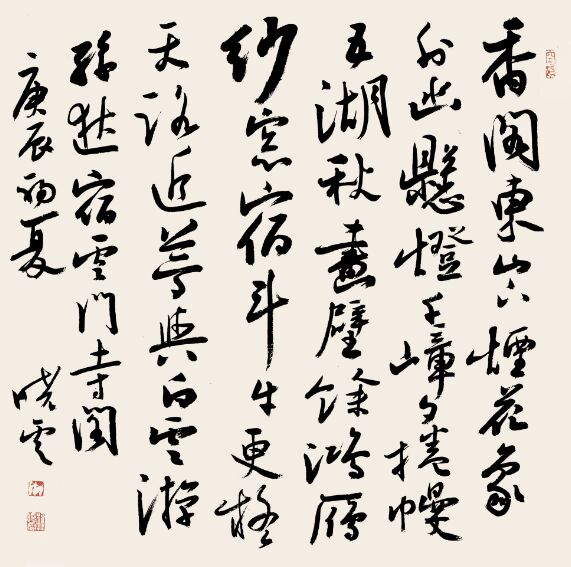 香閣東山下煙花象
外幽懸燈千嶂夕捲幔
五湖秋畫壁餘鴻鴈
紗窓宿斗牛更疑
天路近夢與白雲游
孫逖宿雲門寺閣
庚辰初夏
曉雲